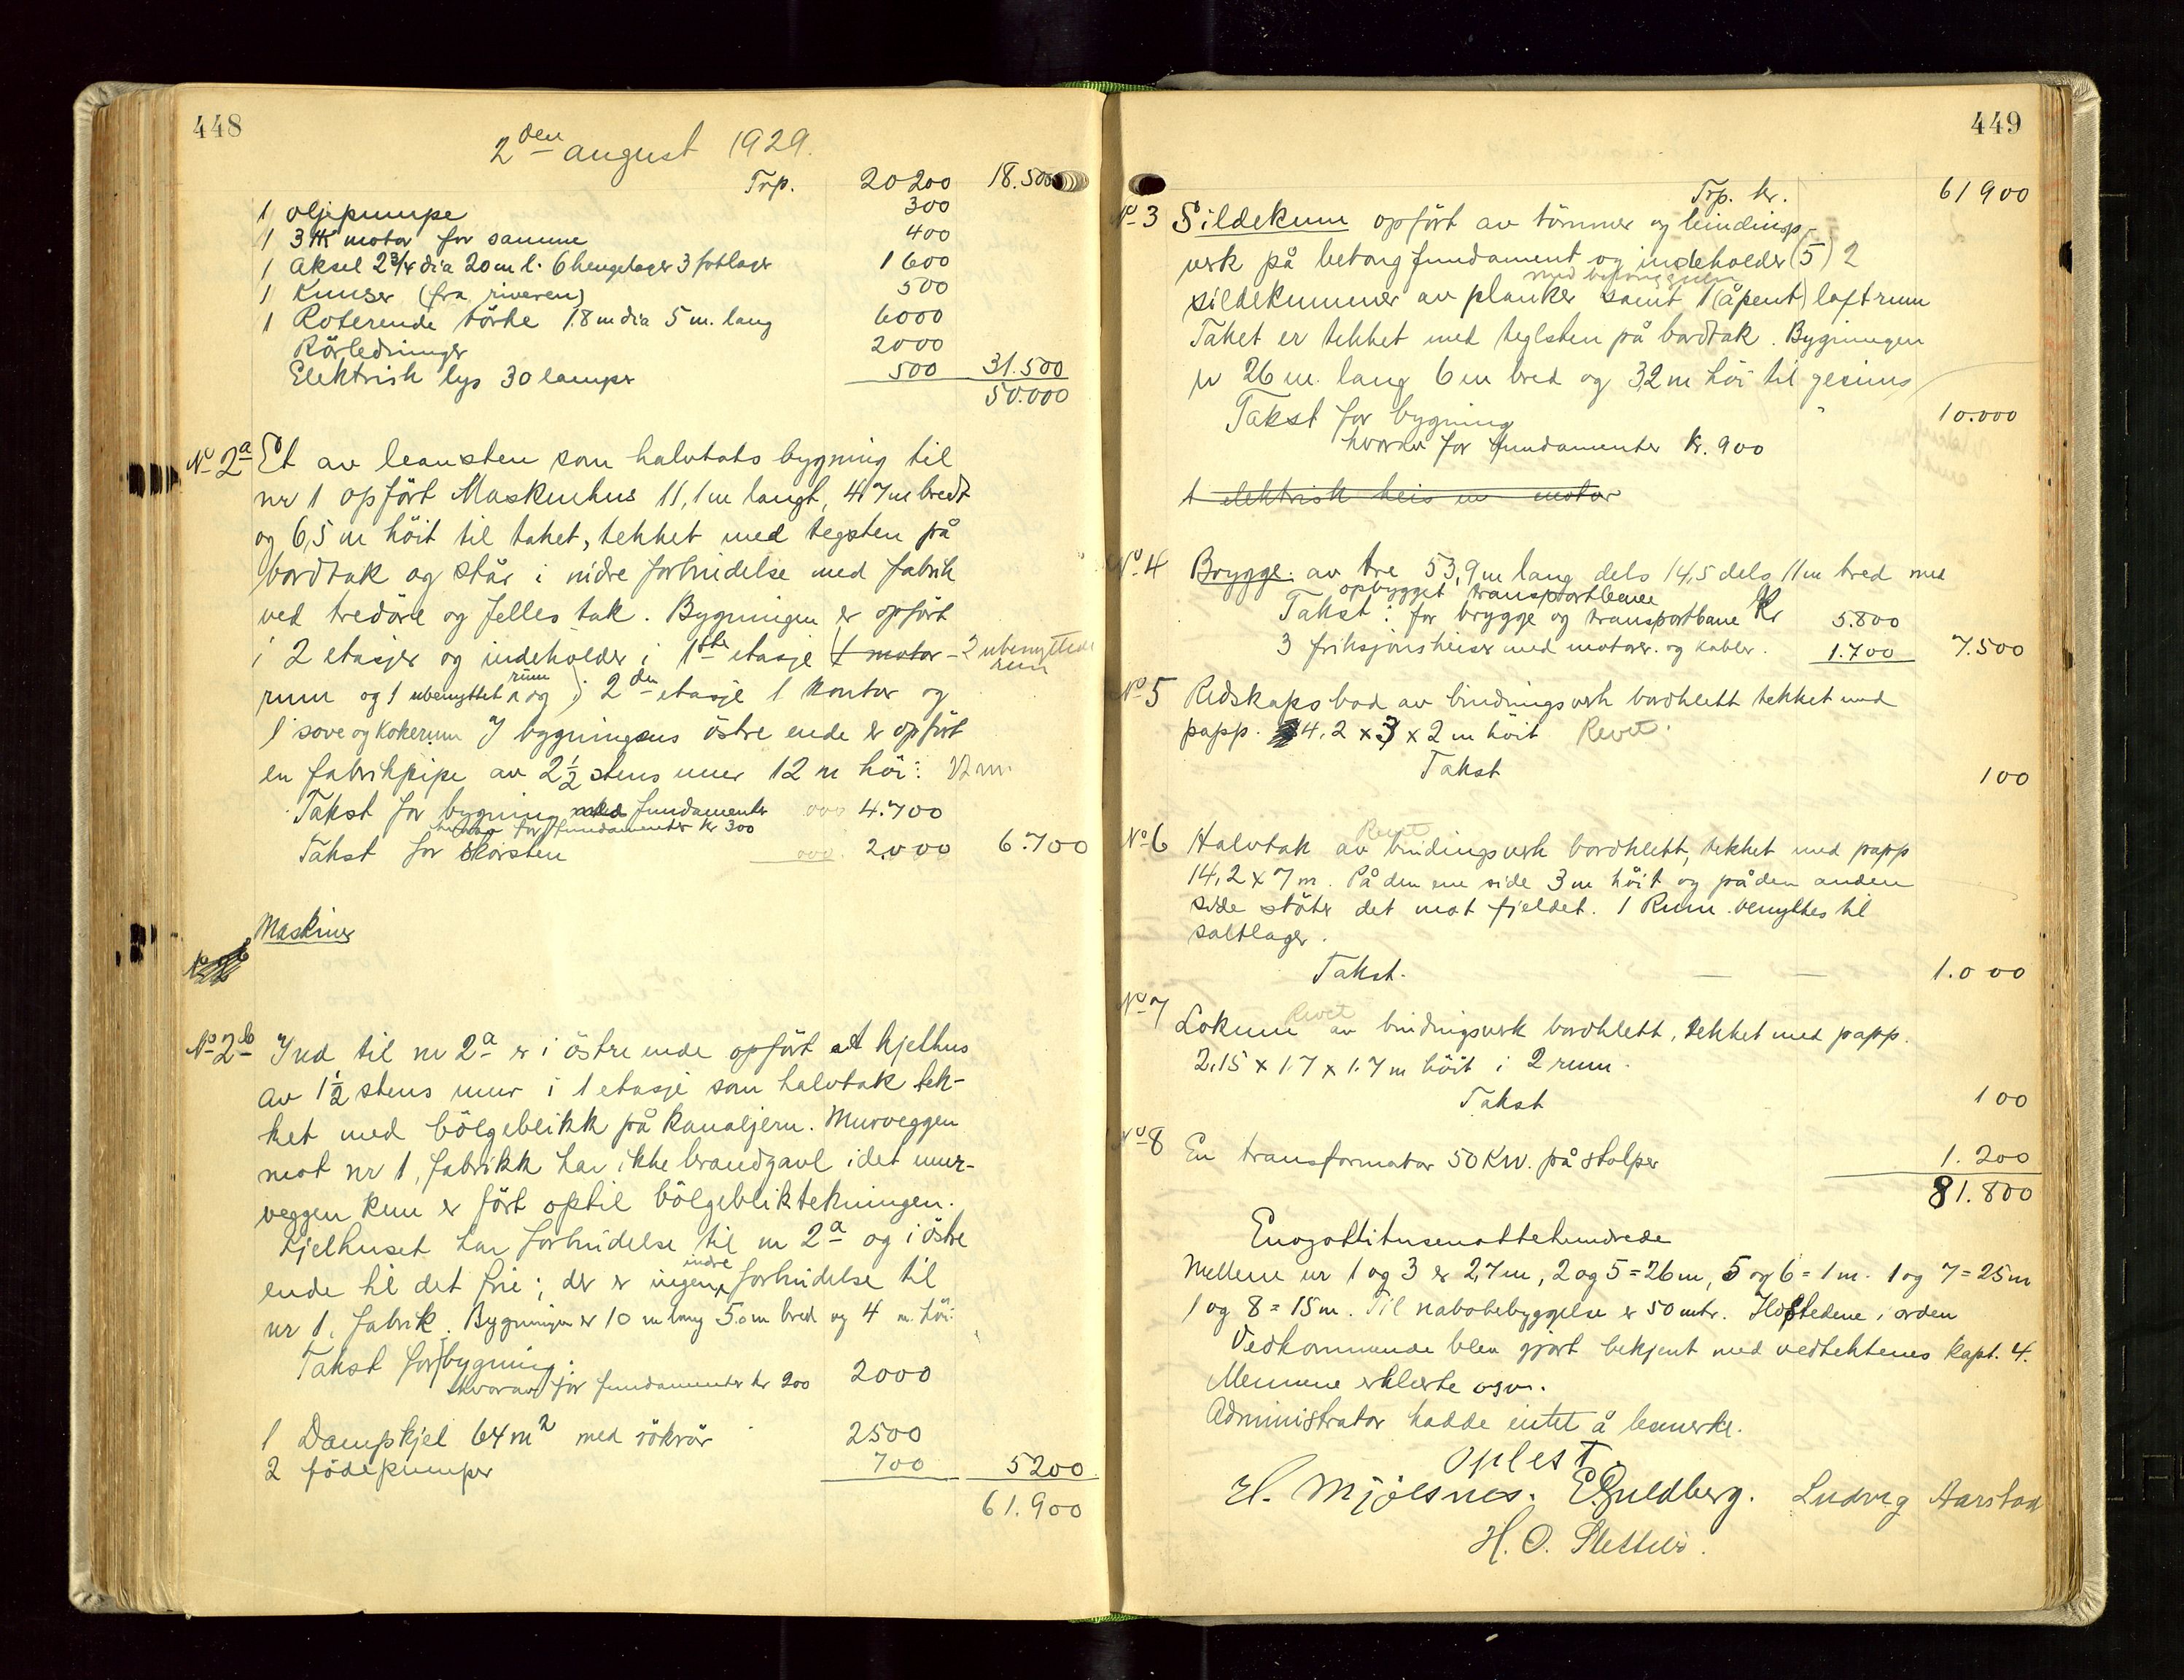 448
2den august 1929.
Trp. 20200 18.500
1 oljepumpe 300
1 3 HK motor for samme 400
1 aksel 2 3/4 dia 20 m l. 6 hengelager 3 fotlager 1600
1 Knuser (fra riveren) 500
1 Roterende törke 1.8 m dia 5 m. lang 6000
Rörledninger 2000
Elektrisk lys 30 lamper 500 31.500
50.000
No 2a Et av leansten som halvtaks bygning til
nr 1 opfört Maskinhus 11,1 m langt, 4,7 m bredt
og 6,5 m höit til taket, tekket med tegsten på
bordtak og står i indre forbindelse med fabrik
ved tredöre og felles tak. Bygningen er opfört
i 2 etasjer og indeholder i 1ste etasje 1 motor - 2 ubenyttede rum
rum og 1 ubenyttet rum og i 2den etasje 1 kontor og
1 sove og kokerum I bygningens östre ende er opfört
en fabrikpipe av 2 1/2 stens mur 12 m höi: 12 m.
Takst for bygning med fundamenter 4.700
hvorav for fundamenter kr 300
Takst for skorsten 2.000 6.700
Maskiner
No 2b Ind til nr 2a er i östre ende opfört et kjelhus
av 1 1/2 stens mur i 1 etasje som halvtak tek-
ket med bölgeblikk på kanaljern. Murveggen
mot nr 1, fabrikk har ikke brandgavl idet mur-
veggen kun er fört optil bölgebliktekningen.
Kjelhuset har forbindelse til nr 2a og i östre
ende til det frie; der er ingen indre forbindelse til
nr 1, fabrik. Bygningen er 10 m lang 5.0 m bred og 4 m. höi.
Takst for bygning:
hvorav for fundamenter kr 200 2000
1 Dampkjel 64 m2 med rökrör 2500
2 födepumper 700 5200
61.900
449
Trp. kr. 61900
No 3 Sildekum opfört av tömmer og bindings-
verk på betongfundament og indeholder (5) 2
sildekummer av planker samt 1 (åpent) loftrum
Taket er tekket med teglsten på bordtak. Bygningen
er 26 m. lang 6 m bred og 3,2 m höi til gesims
Takst for bygning 10.000
hvorav for fundamenter kr. 900
1 elektrisk heis m motor
No 4 Brygge. av tre 53,9 m lang dels 14,5 dels 11 m bred med
opbygget transportbane
Takst: for brygge og transportbane Kr 5.800
3 friksjonsheiser med motorer. og kabler. 1.700 7.500
No 5 Redskapsbod av bindingsverk bordklett tekket med
papp. 4,2 x 3 x 2 m höit Revet.
Takst 100
No 6 Halvtak av bindingsverk bordklett, tekket med papp
Revet
14,2 x 7 m. På den ene side 3 m höit og på den anden
side stöter det mot fjeldet. 1 Rum benyttes til
saltlager.
Takst. 1.000
No 7 Revet
Lokum av bindingsverk bordklett, tekket med papp.
2,15 x 1.7 x 1.7 m höit i 2 rum.
Takst 100
No 8 En transformator 50 KW. på stolper 1.200
81.800
Enogottitusenottehundrede
Mellem nr 1 og 3 er 2,7 m, 2 og 5 = 26 m, 5 og 6 = 1 m. 1 og 7 = 25 m
1 og 8 = 15 m. Til nabobebyggelse er 50 mtr. Ildstedene i orden
Vedkommende blev gjort bekjent med vedtektenes kapt. 4.
Mennene erklærte osv.
Administrator hadde intet å bemerke.
Oplest.
H. Mjölsnes. E. Guldberg. Ludvig Aarstad
H. O. Slettebö.